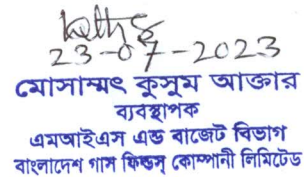 23-07-2023
মোসাম্মৎ কুসুম আক্তার
ব্যবস্থাপক
এমআইএস এন্ড বাজেট বিভাগ
বাংলাদেশ গ্যাস ফিল্ডস্ কোম্পানী লিমিটেড